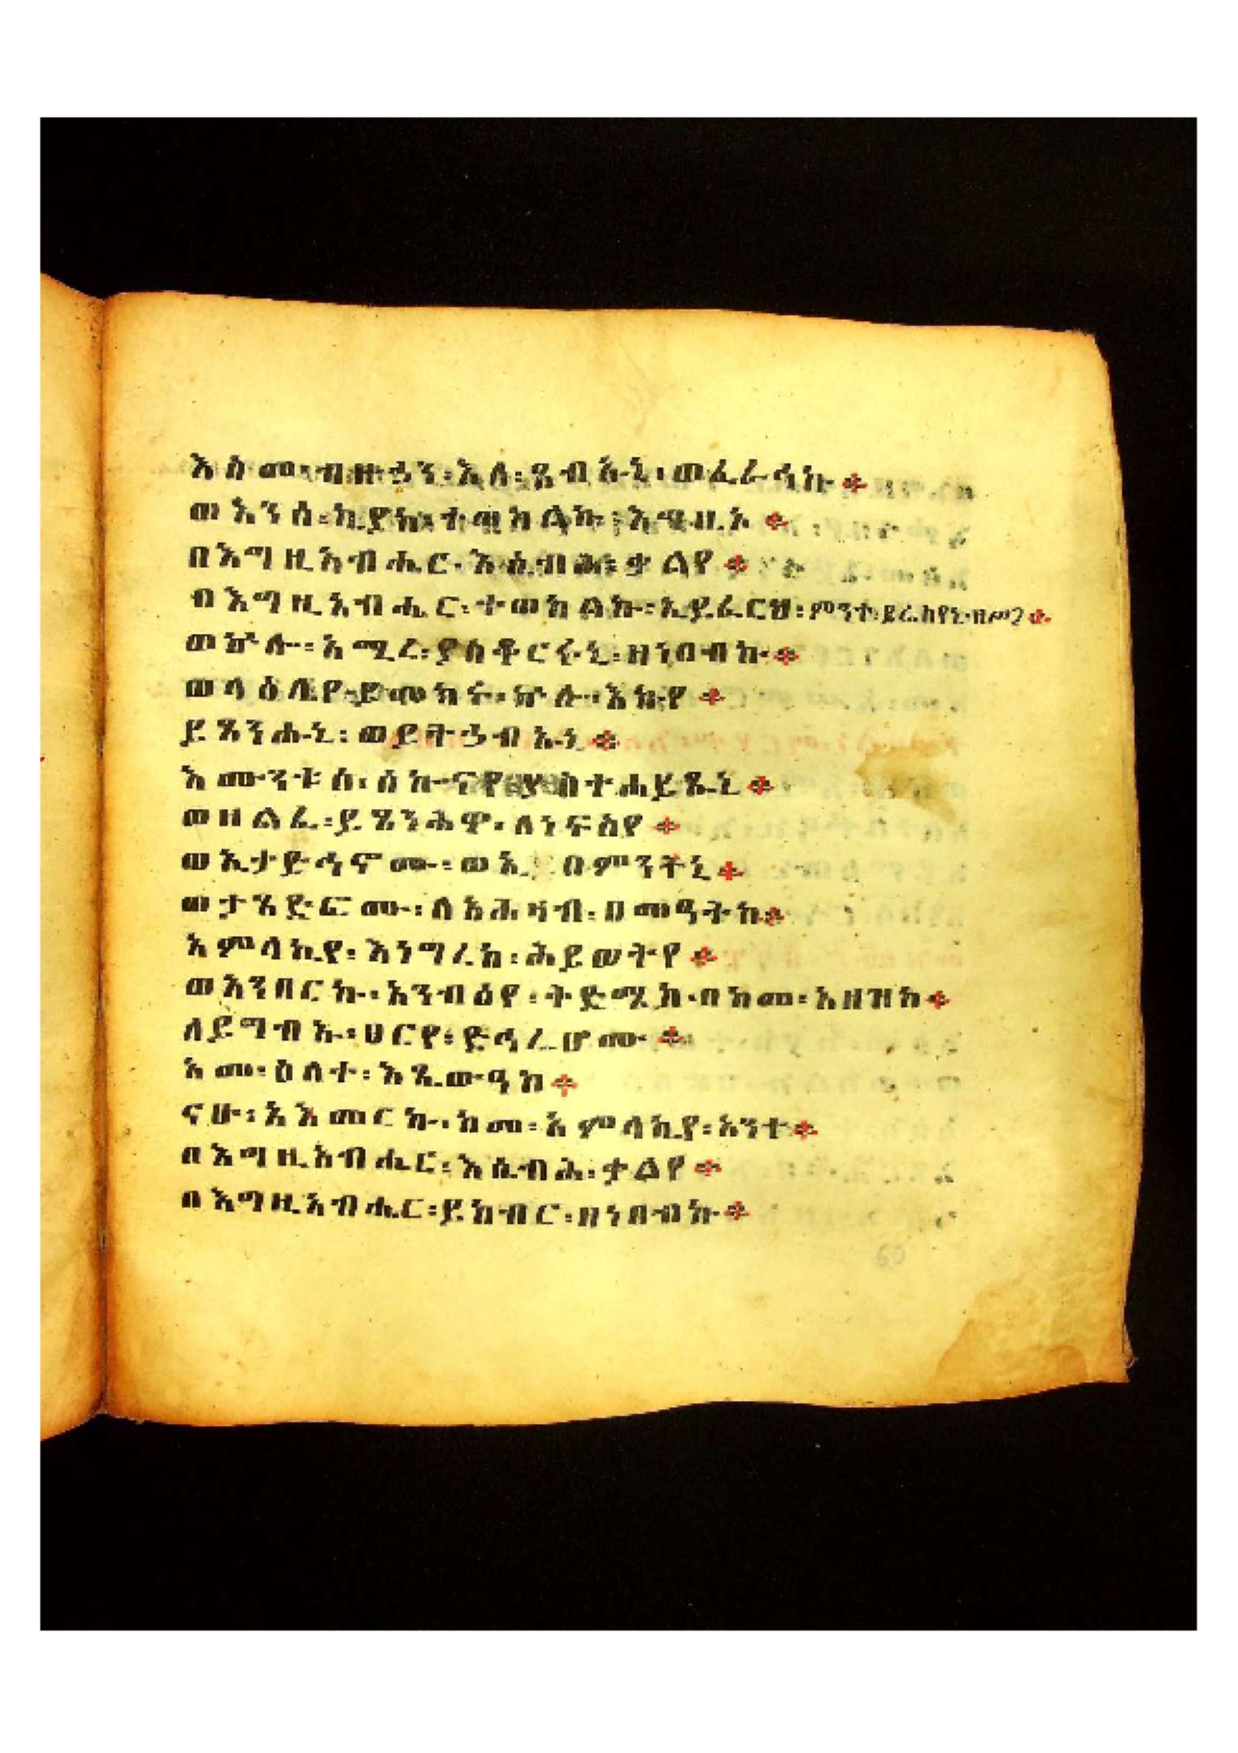 እስመ፡ ብዙኃን፡ እለ፡ ፀብኡኒ፡ ወፈራኅኩ ።
ወአንሰ፡ ኪያከ፡ ተወከልኩ፡ እግዚኦ ።
በእግዚአብሔር፡ እሴብሕ፡ ቃልየ ።
በእግዚአብሔር፡ ተወከልኩ፡ ኢይፈርህ፡ ምንተ፡ ይሬስየኒ፡ ዘሥጋ ።
ወኵሉ፡ አሚረ፡ ያስቆርሩኒ፡ ዘነበብኩ ።
ወላዕሌየ፡ ይመክሩ፡ ኵሉ፡ እኩየ ።
ይጼንሑኒ፡ ወይትኃብኡኒ ።
እሙንቱሰ፡ ሰኰናየ፡ ያስተሐይጹኒ ።
ወዘልፈ፡ ይጼንሕዋ፡ ለነፍስየ ።
ወኢታድኅኖሙ፡ ወኢ በምንትኒ ።
ወታጼድፎሙ፡ ለአሕዛብ፡ በመዓትከ ።
አምላኪየ፡ እነግረከ፡ ሕይወትየ ።
ወአንበርኩ፡ አንብዕየ፡ ቅድሜከ፡ በከመ፡ አዘዝከ ።
ለይግብኡ፡ ፀርየ፡ ድኅሬሆሙ ።
አመ፡ ዕለተ፡ እጼውዓከ ።
ናሁ፡ አእመርኩ፡ ከመ፡ አምላኪየ፡ አንተ ።
በእግዚአብሔር፡ እሴብሕ፡ ቃልየ ።
በእግዚአብሔር፡ ይከብር፡ ዘነበብኩ ።
60